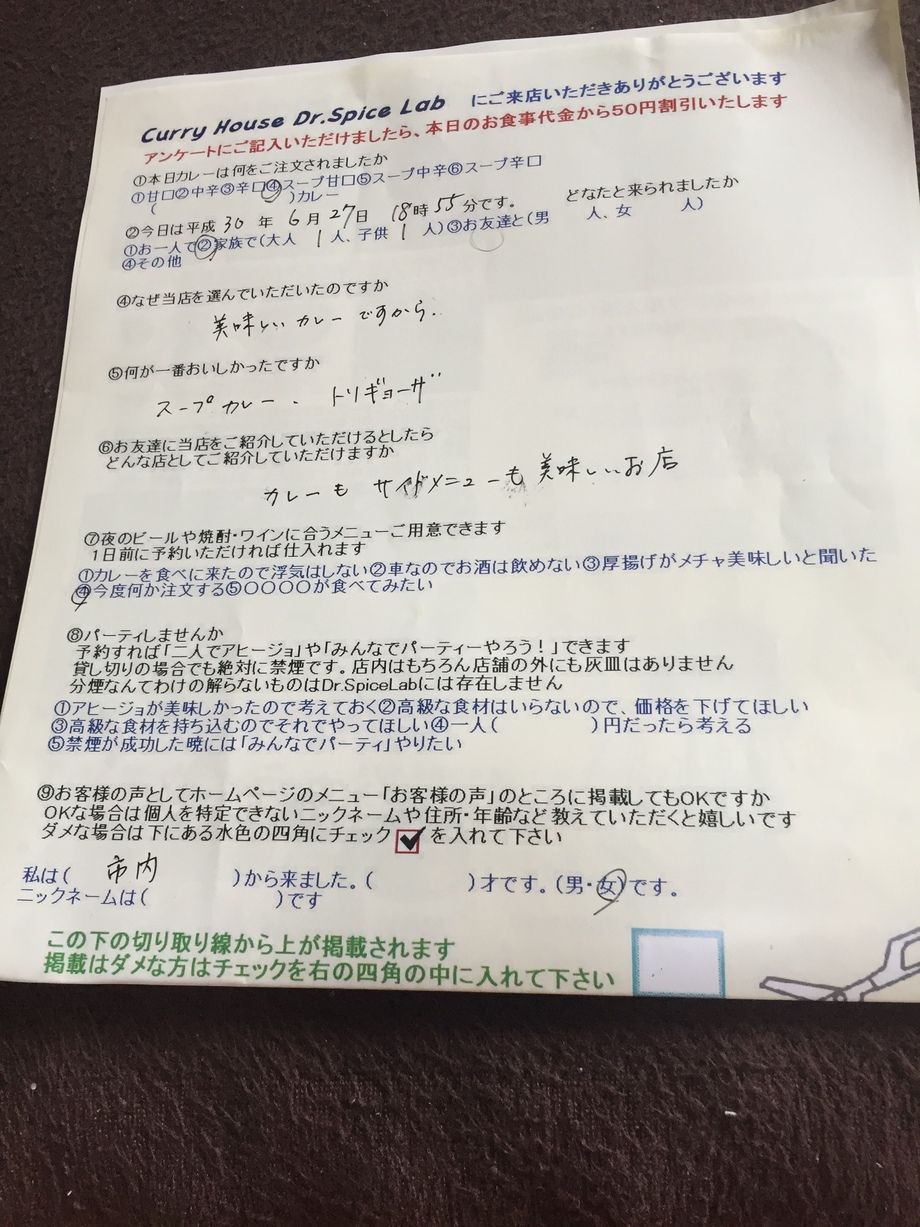 Curry House Dr.Spice Lab にご来店いただきありがとうございます
アンケートにご記入いただけましたら、本日のお食事代金から50円割引いたします
①本日カレーは何をご注文されましたか
①甘口②中辛③辛口④スープ甘口⑤スープ中辛⑥スープ辛口
( )カレー
②今日は平成 30 年 6 月 27 日 18 時 55 分です。 どなたと来られましたか
①お一人で②家族で(大人 1 人、子供 1 人)③お友達と(男 人、女 人)
④その他
④なぜ当店を選んでいただいたのですか
美味しいカレーですから.
⑤何が一番おいしかったですか
スープカレー . トリギョーザ
⑥お友達に当店をご紹介していただけるとしたら
どんな店としてご紹介していただけますか
カレーも サイドメニューも美味しいお店
⑦夜のビールや焼酎・ワインに合うメニューご用意できます
1日前に予約いただければ仕入れます
①カレーを食べに来たので浮気はしない②車なのでお酒は飲めない③厚揚げがメチャ美味しいと聞いた
④今度何か注文する⑤〇〇〇〇が食べてみたい
⑧パーティしませんか
予約すれば「二人でアヒージョ」や「みんなでパーティーやろう!」できます
貸し切りの場合でも絶対に禁煙です。店内はもちろん店舗の外にも灰皿はありません
分煙なんてわけの解らないものはDr.SpiceLabには存在しません
①アヒージョが美味しかったので考えておく②高級な食材はいらないので、価格を下げてほしい
③高級な食材を持ち込むのでそれでやってほしい④一人( )円だったら考える
⑤禁煙が成功した暁には「みんなでパーティ」やりたい
⑨お客様の声としてホームページのメニュー「お客様の声」のところに掲載してもOKですか
OKな場合は個人を特定できないニックネームや住所・年齢など教えていただくと嬉しいです
ダメな場合は下にある水色の四角にチェック を入れて下さい
私は( 市内 )から来ました。( )才です。(男・女)です。
ニックネームは( )です
この下の切り取り線から上が掲載されます
掲載はダメな方はチェックを右の四角の中に入れて下さい